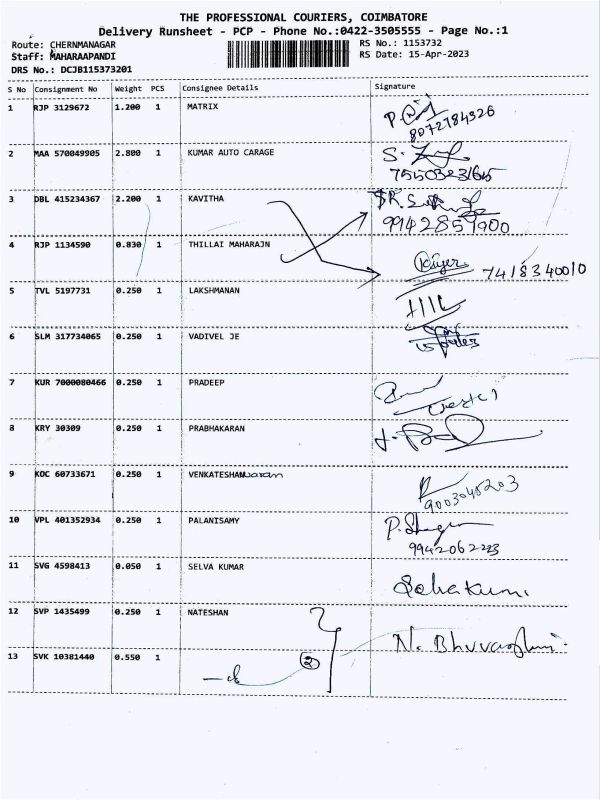 THE PROFESSIONAL COURIERS, COIMBATORE
Delivery Runsheet - PCP - Phone No.:0422-3505555 - Page No.:1
Route: CHERNMANAGAR RS No.: 1153732
Staff: MAHARAAPANDI RS Date: 15-Apr-2023
DRS No.: DCJB115373201
S No Consignment No Weight PCS Consignee Details Signature
1 RJP 3129672 1.200 1 MATRIX
8072784326
2 MAA 570049905 2.800 1 KUMAR AUTO CARAGE
3 DBL 415234367 2.200 1 KAVITHA
9942851900
4 RJP 1134590 0.830 1 THILLAI MAHARAJN
7418340010
5 TVL 5197731 0.250 1 LAKSHMANAN
6 SLM 317734065 0.250 1 VADIVEL JE
7 KUR 7000080466 0.250 1 PRADEEP
8 KRY 30309 0.250 1 PRABHAKARAN
9 KOC 60733671 0.250 1 VENKATESHwaran
9003045203
10 VPL 401352934 0.250 1 PALANISAMY
9942062223
11 SVG 4598413 0.050 1 SELVA KUMAR
12 SVP 1435499 0.250 1 NATESHAN
13 SVK 10381440 0.550 1
2